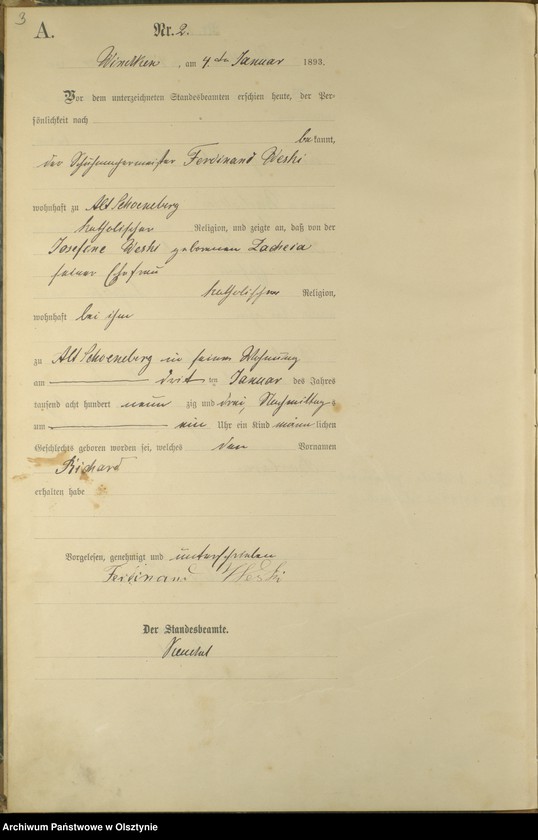 3
A.
Nr. 2.
Windtken, am 4ten Januar 1893.
Vor dem unterzeichneten Standesbeamten erschien heute, der Per-
sönlichkeit nach
bekannt,
der Schuhmachermeister Ferdinand Weski
wohnhaft zu Alt Schoeneberg
katholischer Religion, und zeigte an, daß von der
Josefine Weski geborenen Zachera
seiner Ehefrau
katholischer Religion,
wohnhaft bei ihm
zu Alt Schoeneberg in seiner Wohnung
am dritten Januar des Jahres
tausend acht hundert neun zig und drei, Nachmittag
um ein Uhr ein Kind männlichen
Geschlechts geboren worden sei, welches den Vornamen
Richard
erhalten habe
Vorgelesen, genehmigt und unterschrieben
Ferdinand Weski
Der Standesbeamte.
Archiwum Państwowe w Olsztynie